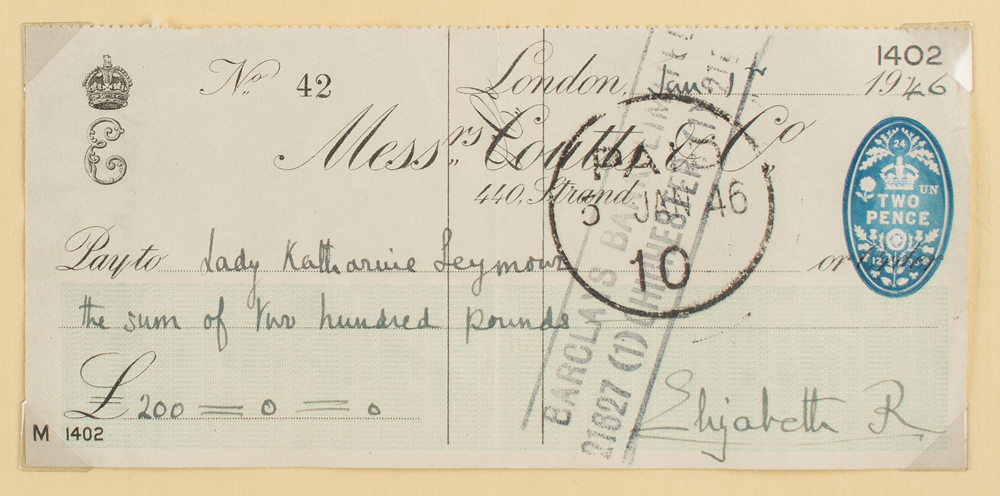 1402
Nº 42
London, Jan 1st 1946
Messrs. Coutts & Co.
440, Strand.
PAID
3 JAN 46
10
24
UN
TWO
PENCE
Pay to Lady Katharine Seymour or
the sum of two hundred pounds
£ 200 = 0 = 0
BARCLAYS BANK LIMITED
21627 (1) CHICHESTER
Elizabeth R
M 1402